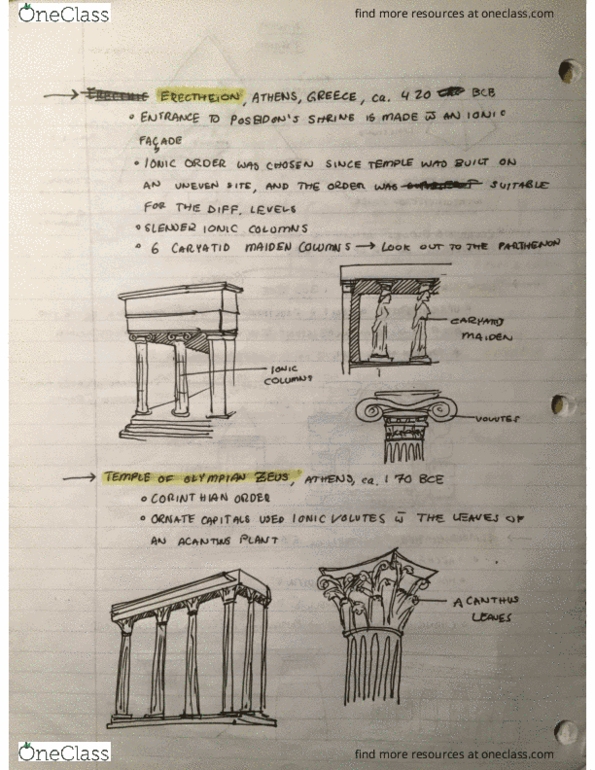 OneClass
find more resources at oneclass.com
→ ERECTHEION, ATHENS, GREECE, ca. 420 BCB
• ENTRANCE TO POSEIDON'S SHRINE IS MADE w̅ AN IONIC
FAÇADE
• IONIC ORDER WAS CHOSEN SINCE TEMPLE WAS BUILT ON
AN UNEVEN SITE, AND THE ORDER WAS SUITABLE
FOR THE DIFF. LEVELS
• SLENDER IONIC COLUMNS
• 6 CARYATID MAIDEN COLUMNS → LOOK OUT TO THE PARTHENON
CARYATID
MAIDEN
IONIC
COLUMNS
VOLUTES
→ TEMPLE OF OLYMPIAN ZEUS, ATHENS, ca. 170 BCE
• CORINTHIAN ORDER
• ORNATE CAPITALS USED IONIC VOLUTES w̅ THE LEAVES OF
AN ACANTHUS PLANT
ACANTHUS
LEAVES
OneClass
find more resources at oneclass.com